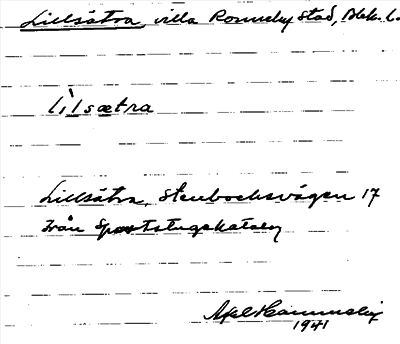 Lillsätra, villa Ronneby stad, Blek. l.
lìlsætra
Lillsätra, Stenbocksvägen 17
Från Sportstugekatalog
Axel
1941